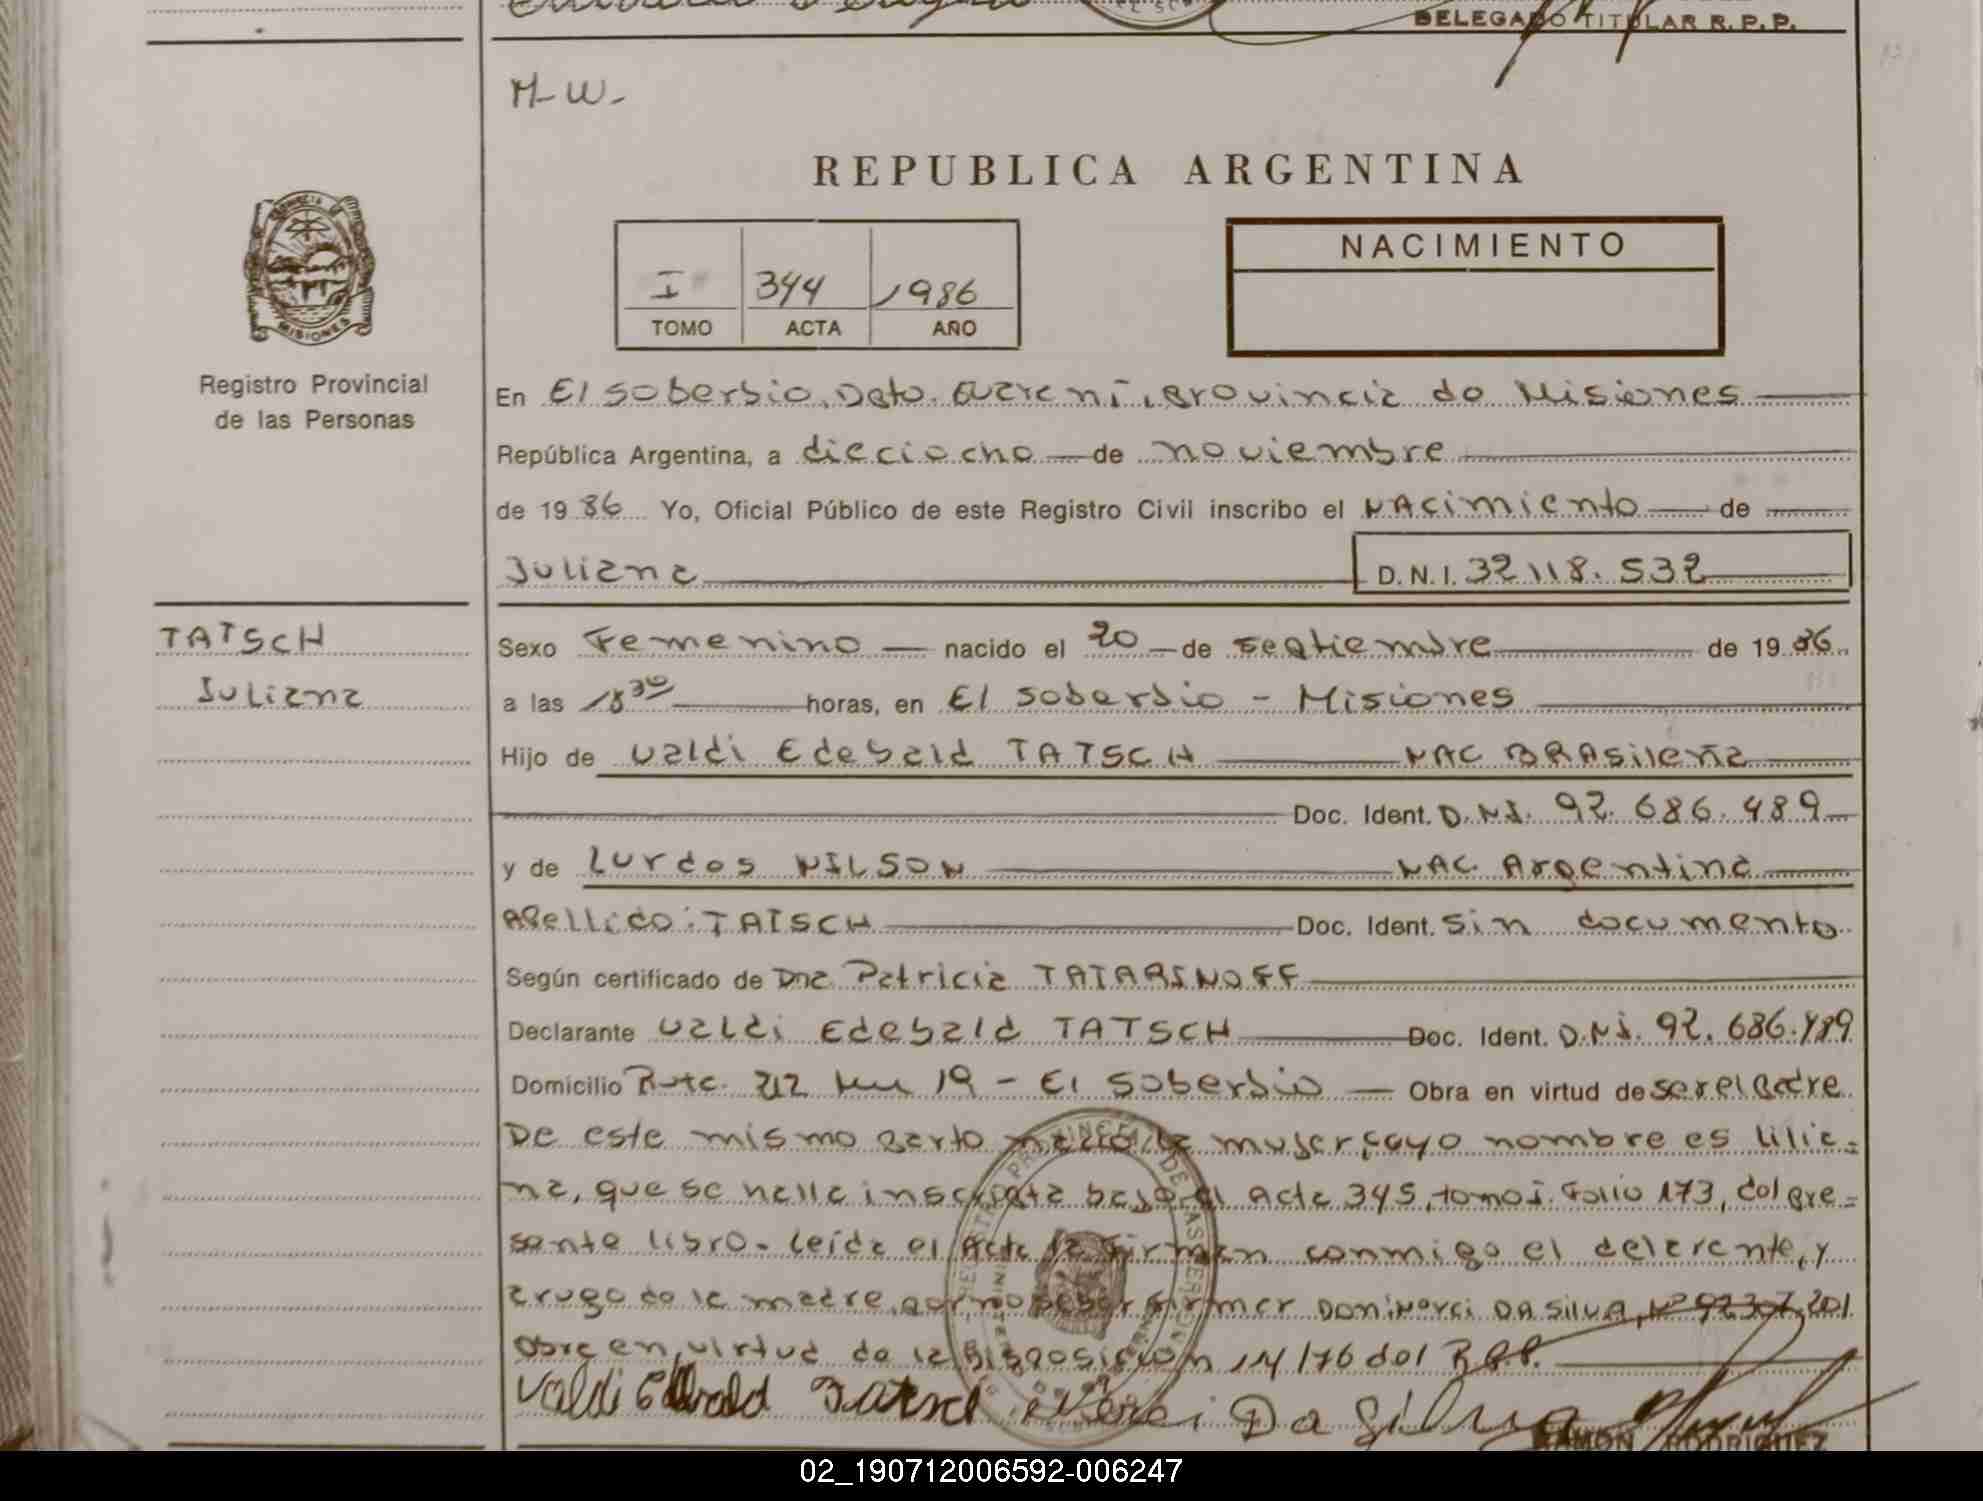 DELEGADO TITULAR R.P.P.
M-W-
REPUBLICA ARGENTINA
I 344 1986
TOMO ACTA AÑO
NACIMIENTO
MISIONES
Registro Provincial
de las Personas
En El soberbio, Dpto. Guarani, provincia de Misiones
República Argentina, a dieciocho de noviembre
de 1986 Yo, Oficial Público de este Registro Civil inscribo el NAcimiento de
Juliana D.N.I. 32.118.532
TATSCH
Juliana
Sexo Femenino nacido el 20 de septiembre de 1986
a las 18 30 horas, en El soberbio - Misiones
Hijo de Valdi Edebald TATSCH NAC BRAsileña
Doc. Ident. D.NI. 92.686.489
y de Lurdes NILSON NAC Argentina
Apellido: TATSCH Doc. Ident. sin documento
Según certificado de Dra. Patricia TATARINOFF
Declarante Valdi Edebald TATSCH Doc. Ident. D.NI. 92.686.489
Domicilio Ruta 212 km 19 - El soberbio Obra en virtud de ser el padre
De este mismo parto nacio la mujer cuyo nombre es Lilia=
na, que se halla inscripta bajo el acta 345, tomo I. Folio 173, del pre=
sente libro. Leida el Acta la firman conmigo el delarente, y
a rugo de la madre, por no saber firmar Don iNerci DA SILVA, Nº 92307.201
Obra en virtud de la Disposicion 14/76 del R.P.P.
Valdi Edebald Tatsch iNerci Da Silva
RAMON RODRIGUEZ
02_190712006592-006247